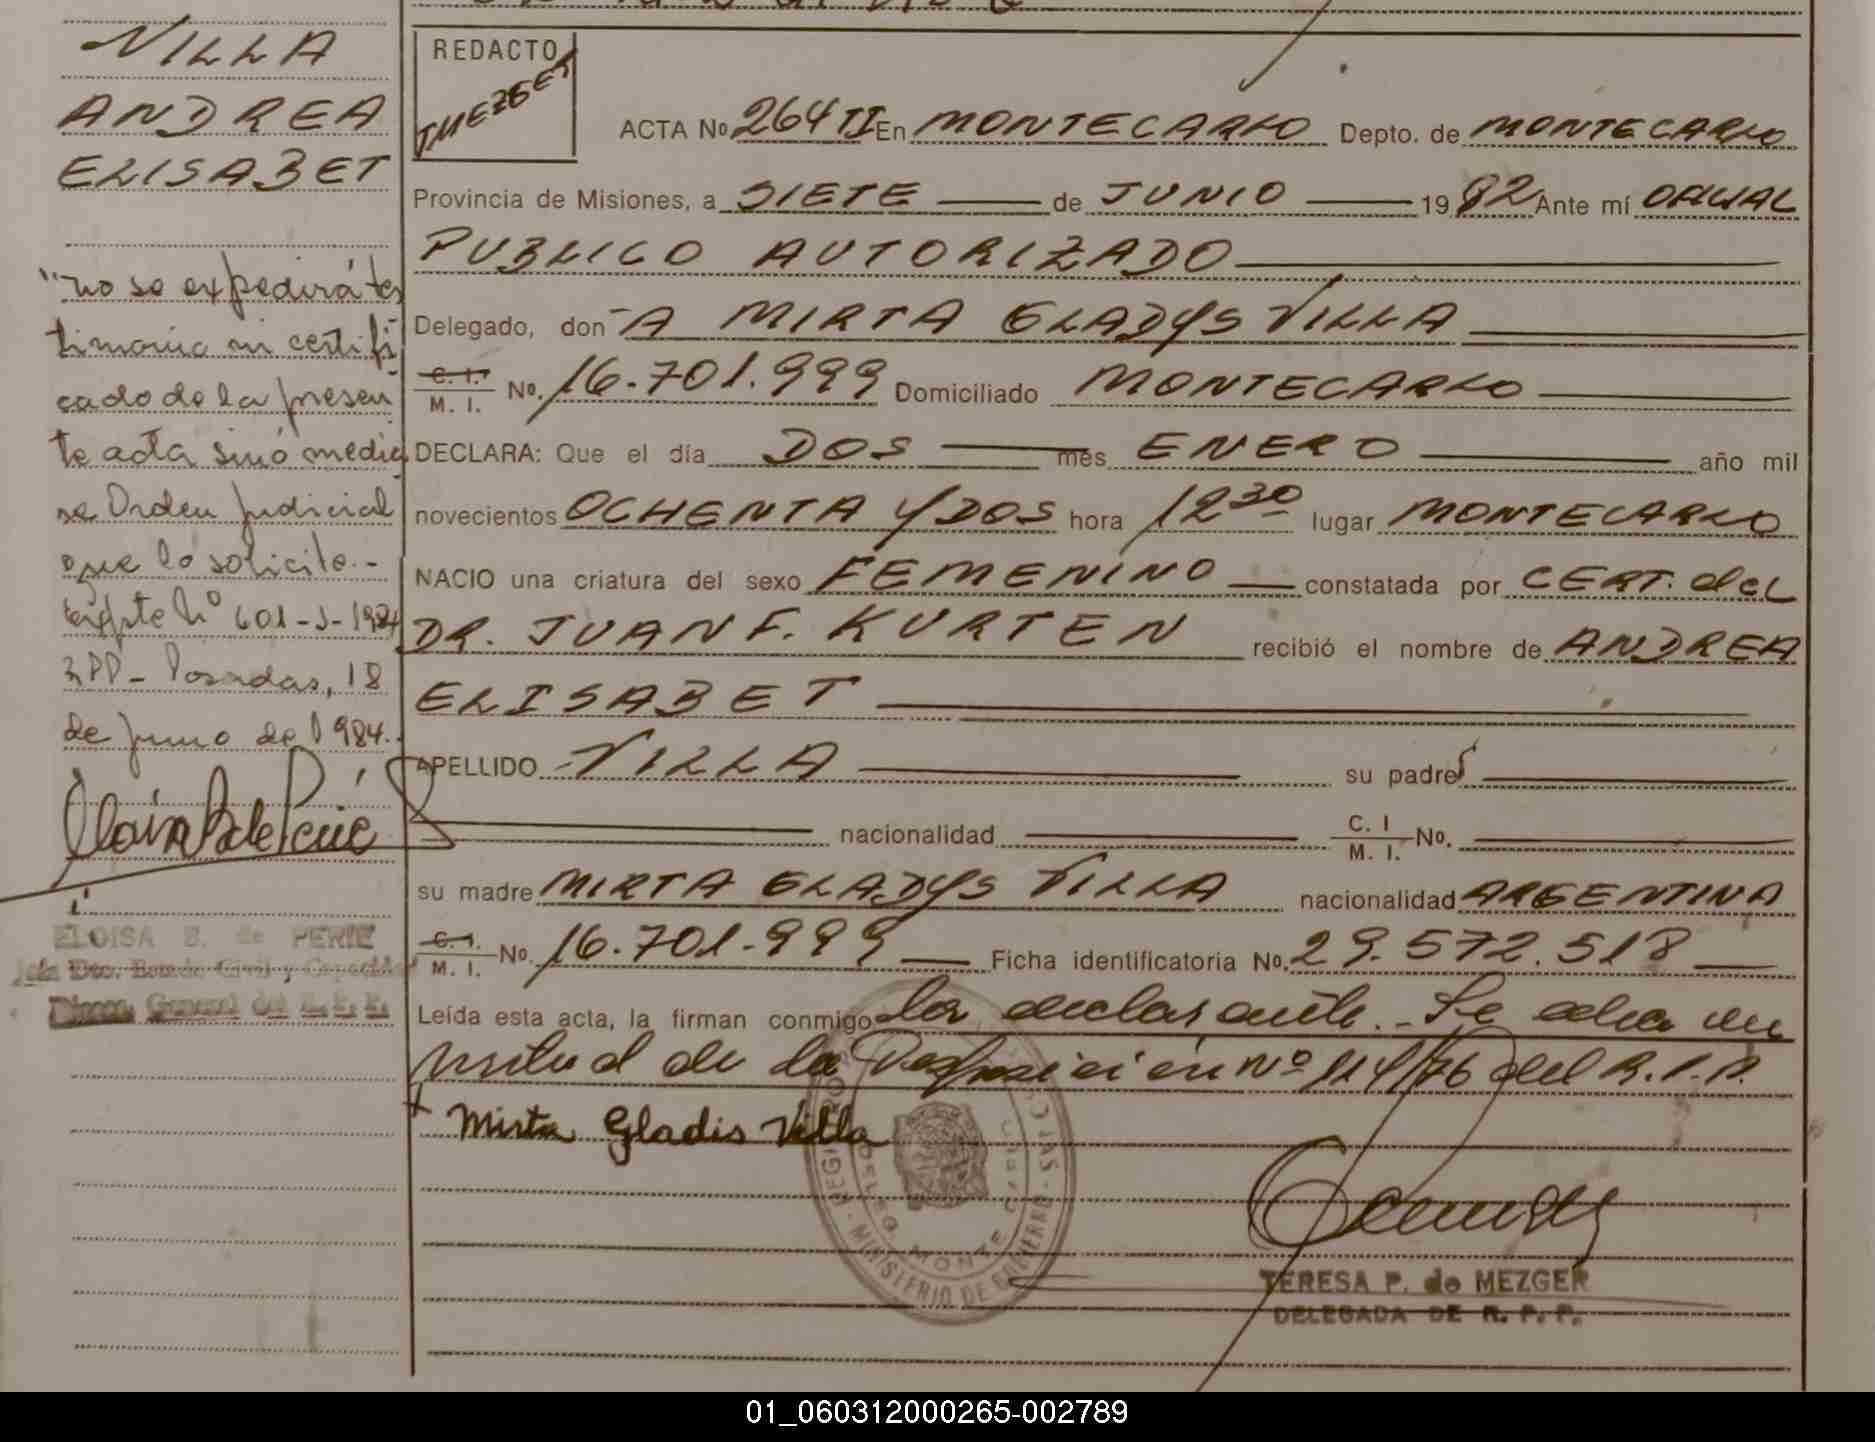 VILLA
ANDREA
ELISABET
"no se expedirá tes
timonio ni certifi
cado de la presen
te acta sinó media
Orden Judicial
que lo solicite.-
Expte Nº 601-J-1984
Posadas, 18
de junio de 1984.
ELOISA B. de PERIE
Jefa Dto. Estado Civil y Capacidad
Direcc. General del R. P. P.
REDACTO
TMEZGER
ACTA No 264 TI En MONTECARLO Depto. de MONTECARLO
Provincia de Misiones, a SIETE de JUNIO 1982 Ante mí OFICIAL
PUBLICO AUTORIZADO
Delegado, don A MIRTA GLADYS VILLA
C. I. M. I. No. 16.701.999 Domiciliado MONTECARLO
DECLARA: Que el día DOS mes ENERO año mil
novecientos OCHENTA Y DOS hora 12 30 lugar MONTECARLO
NACIO una criatura del sexo FEMENINO constatada por CERT. del
DR. JUAN F. KURTEN recibió el nombre de ANDREA
ELISABET
APELLIDO VILLA su padre
nacionalidad C. I M. I. No.
su madre MIRTA GLADYS VILLA nacionalidad ARGENTINA
C. I. M. I. No. 16.701.999 Ficha identificatoria No. 29.572.518
Leída esta acta, la firman conmigo la declarante. Se labra en
virtud de la Disposición Nº 114/76 del R.P.P.
Mirta Gladis Villa
MINISTERIO DE GOBIERNO
TERESA P. de MEZGER
DELEGADA DE R. P. P.
01_060312000265-002789